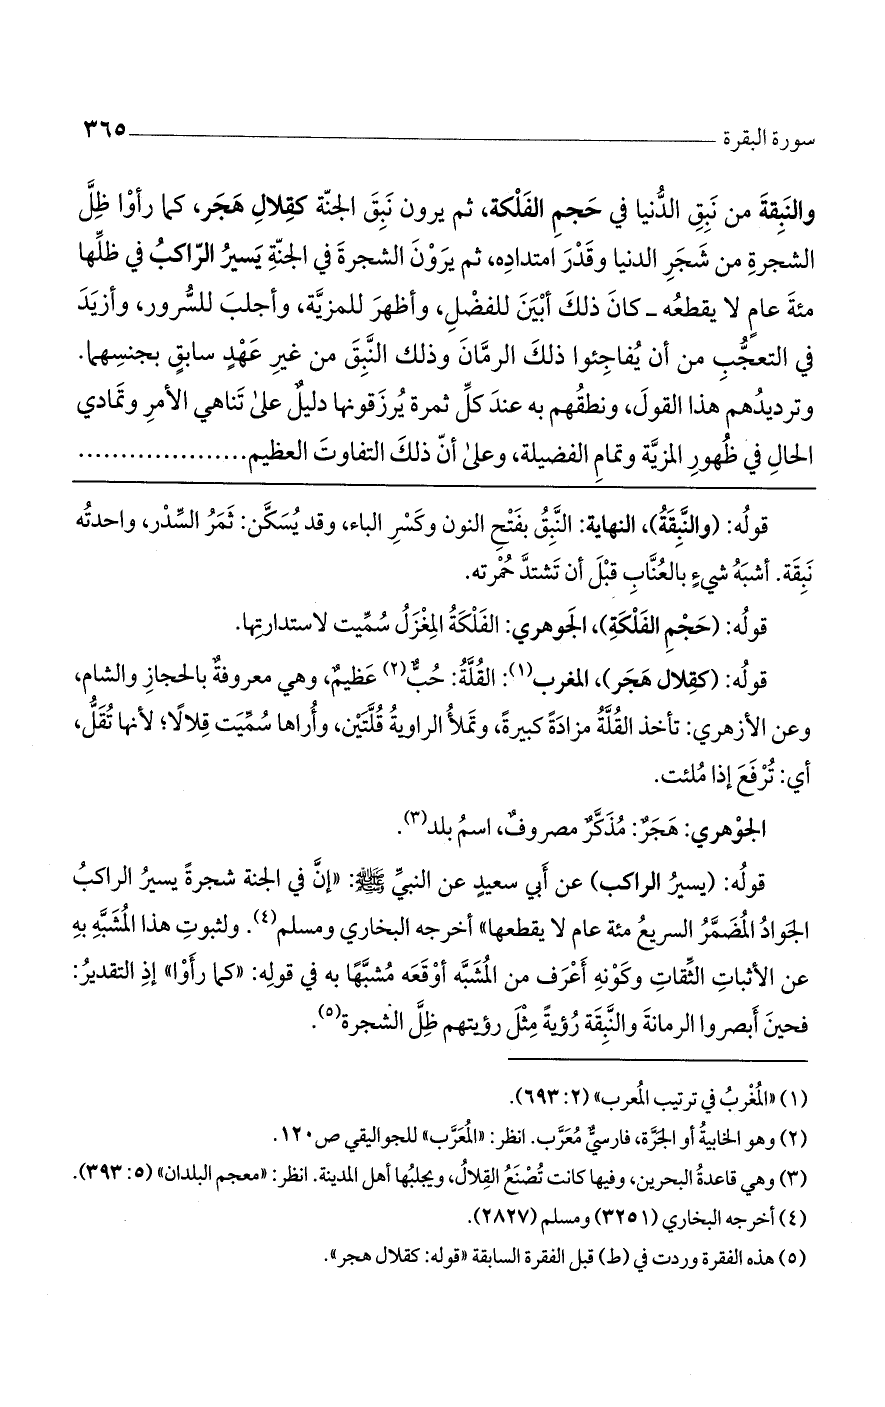 سورة البقرة ٣٦٥
والنَبِقةَ من نَبِقِ الدُّنيا في حَجمِ الفَلْكة، ثم يرون نَبِقَ الجنّة كقِلالِ هَجَر، كما رأوْا ظِلَّ
الشجرةِ من شَجَرِ الدنيا وقَدْرَ امتدادِه، ثم يرَوْنَ الشجرةَ في الجنّةِ يَسيرُ الرّاكبُ في ظلِّها
مئةَ عامٍ لا يقطعُه ـ كانَ ذلكَ أبْيَنَ للفضْلِ، وأظهرَ للمزيَّة، وأجلبَ للسُّرور، وأزيَدَ
في التعجُّبِ من أن يُفاجِئوا ذلكَ الرمَّانَ وذلك النَّبِقَ من غيرِ عَهْدٍ سابقٍ بجنسِهما.
وترديدُهم هذا القولَ، ونطقُهم به عندَ كلِّ ثمرة يُرزَقونها دليلٌ علىٰ تَناهي الأمرِ وتمادي
الحالِ في ظُهورِ المزيَّة وتمامِ الفضيلة، وعلىٰ أنّ ذلكَ التفاوتَ العظيم....................
قولُه: (والنَّبِقَةُ)، النهاية: النَّبِقُ بفَتْحِ النون وكَسْرِ الباء، وقد يُسَكَّن: ثَمَرُ السِّدْر، واحدتُه
نَبِقَة. أشبَهُ شيءٍ بالعُنَّابِ قبْلَ أن تَشتدَّ حُمْرته.
قولُه: (حَجْمِ الفَلْكَةِ)، الجَوهري: الفَلْكَةُ المِغْزَلُ سُمِّيت لاستدارتِها.
قولُه: (كقِلال هَجَر)، المغرب(١): القُلَّةُ: حُبٌّ(٢) عَظيمٌ، وهي معروفةٌ بالحجازِ والشام،
وعن الأزهري: تأخذ القُلَّةُ مزادَةً كبيرةً، وتملأُ الراويةُ قُلَّتَيْن، وأُراها سُمِّيَت قِلالًا؛ لأنها تُقَلُّ،
أي: تُرْفَعَ إذا مُلئت.
الجوْهري: هَجَرٌ: مُذَكَّرٌ مصروفٌ، اسمُ بلد(٣).
قولُه: (يسيرُ الراكب) عن أَبي سعيدٍ عن النبيِّ ﷺ: «إنَّ في الجنة شجرةً يسيرُ الراكبُ
الجَوادُ المُضَمَّرُ السريعُ مئة عام لا يقطعها» أخرجه البخاري ومسلم(٤). ولثبوتِ هذا المُشبَّهِ بهِ
عن الأثباتِ الثِّقاتِ وكَوْنهِ أعْرَف من المُشبَّه أوْقَعَه مُشبَّهًا به في قولِه: «كما رأَوْا» إذِ التقديرُ:
فحينَ أَبصروا الرمانةَ والنَّبِقَة رُؤيةً مِثْلَ رؤيتهم ظِلَّ الشجرة(٥).
(١) «المُغْربُ في ترتيب المُعرب» (٢: ٦٩٣).
(٢) وهو الخابيةُ أو الجَرَّة، فارسيٌّ مُعَرَّب. انظر: «المُعَرَّب» للجواليقي ص١٢٠.
(٣) وهي قاعدةُ البحرين، وفيها كانت تُصْنَعُ القِلالُ، ويجلبُها أهل المدينة. انظر: «معجم البلدان» (٥: ٣٩٣).
(٤) أخرجه البخاري (٣٢٥١) ومسلم (٢٨٢٧).
(٥) هذه الفقرة وردت في (ط) قبل الفقرة السابقة «قوله: كقلال هجر».